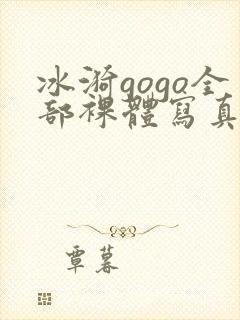 冰漪gogo全
部裸體寫真
覃暮